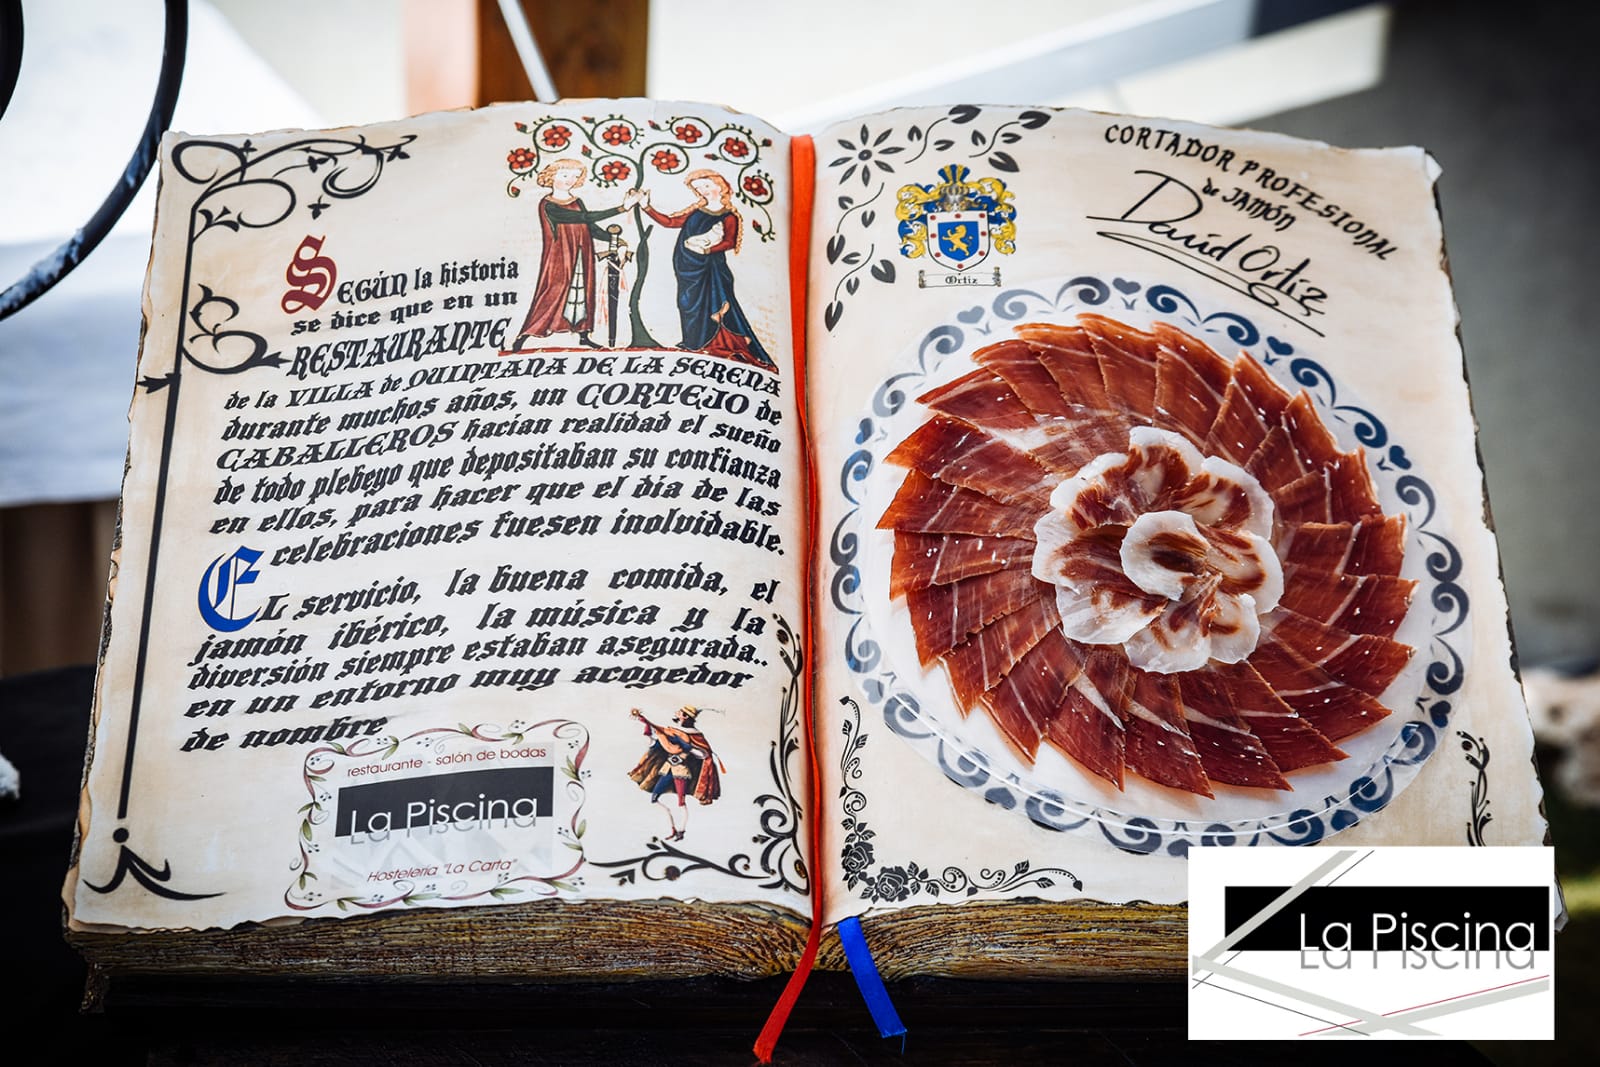 Según la historia
se dice que en un
RESTAURANTE
de la VILLA de QUINTANA DE LA SERENA
durante muchos años, un CORTEJO de
CABALLEROS hacían realidad el sueño
de todo plebeyo que depositaban su confianza
en ellos, para hacer que el día de las
celebraciones fuesen inolvidable.
El servicio, la buena comida, el
jamón ibérico, la música y la
diversión siempre estaban asegurada..
en un entorno muy acogedor
de nombre
restaurante - salón de bodas
La Piscina
Hostelería "La Carta"
CORTADOR PROFESIONAL
de JAMÓN
David Ortiz
Ortiz
La Piscina